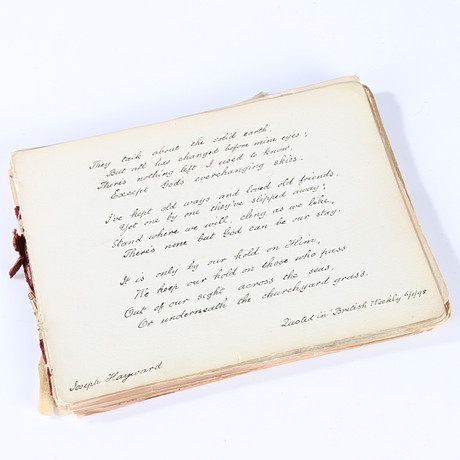 They talk about the solid earth,
But all has changed before mine eyes;
Theres nothing left I used to know,
Except Gods everchanging skies.
I've kept old ways and loved old friends,
Yet one by one they've slipped away;
Stand where we will, cling as we like,
There's none but God can be our stay.
It is only by our hold on Him,
We keep our hold on those who pass
Out of our sight across the seas.
Or underneath the churchyard grass.
Quoted in "British Weekly 6/1/98
Joseph Hayward